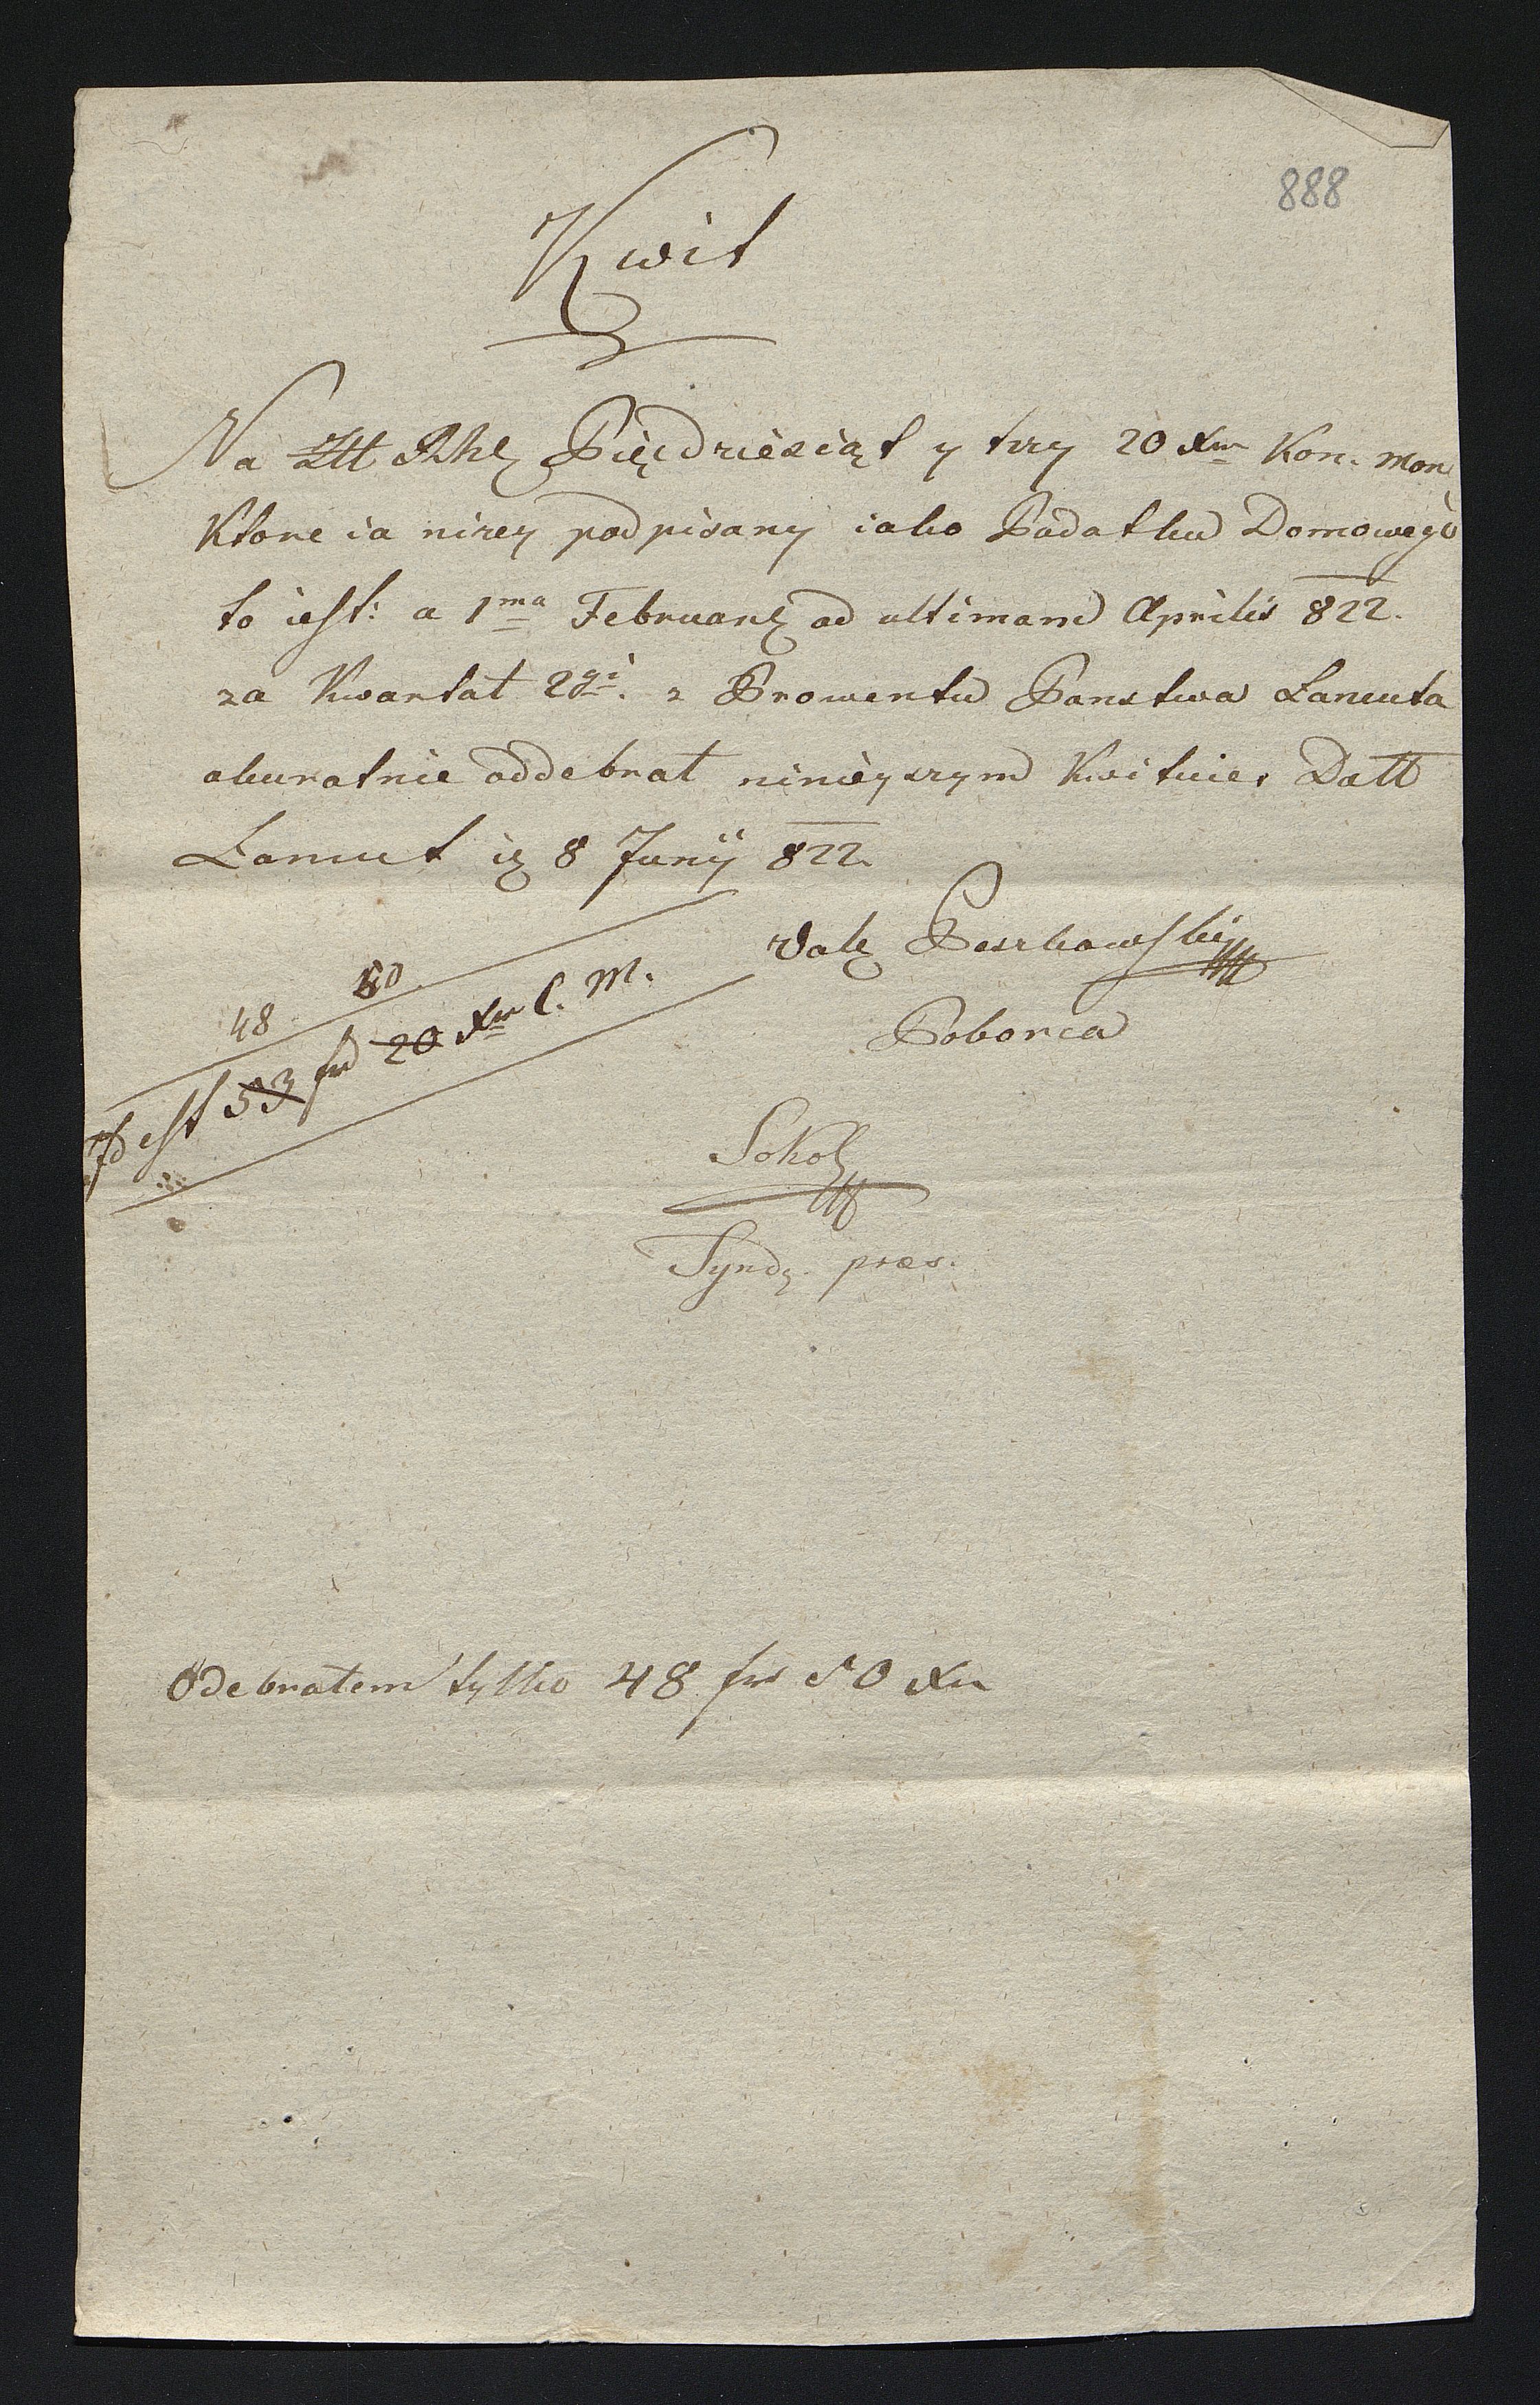 888
Kwit
Na Złł Rhę Pięcdziesiąt y trzy 20 Xr Kon. Mon.
Ktore ia nizey podpisany iako Podatku Domowego
to iest: a 1ma Februarę ad ultimam Aprilis 822.
za Kwartał 2gi. z Prowentu Panstwa Lancuta
akuratnie oddebrał ninieyszym Kwituie. Datt
Lancut ią 8 Junÿ 822.
Valę
Poborca
48 50
Id est 53 fr 20 Xr C. M.
Sokoł
Syndę. præs.
Odebrałem tylko 48 fr 50 Xr